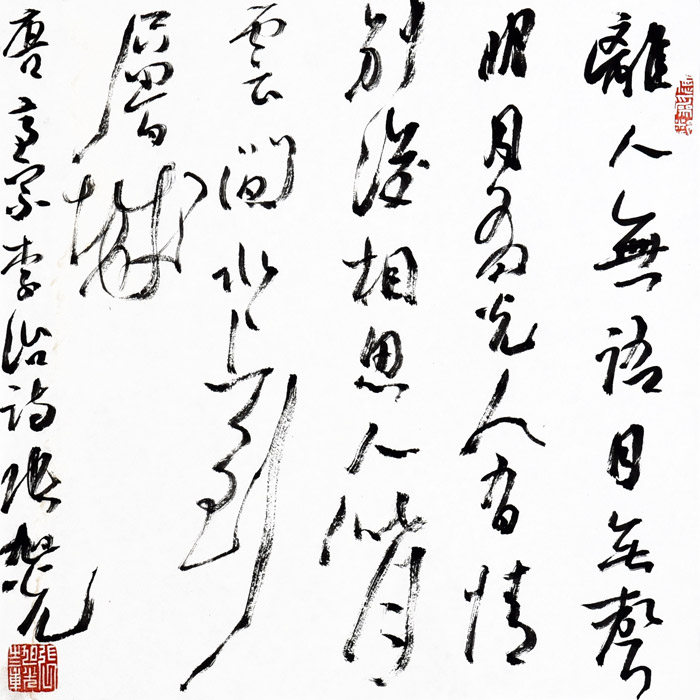 離人無語月无聲
明月有光人有情
別後相思人似月
雲間水上到
層城
唐高宗李治詩張旭光